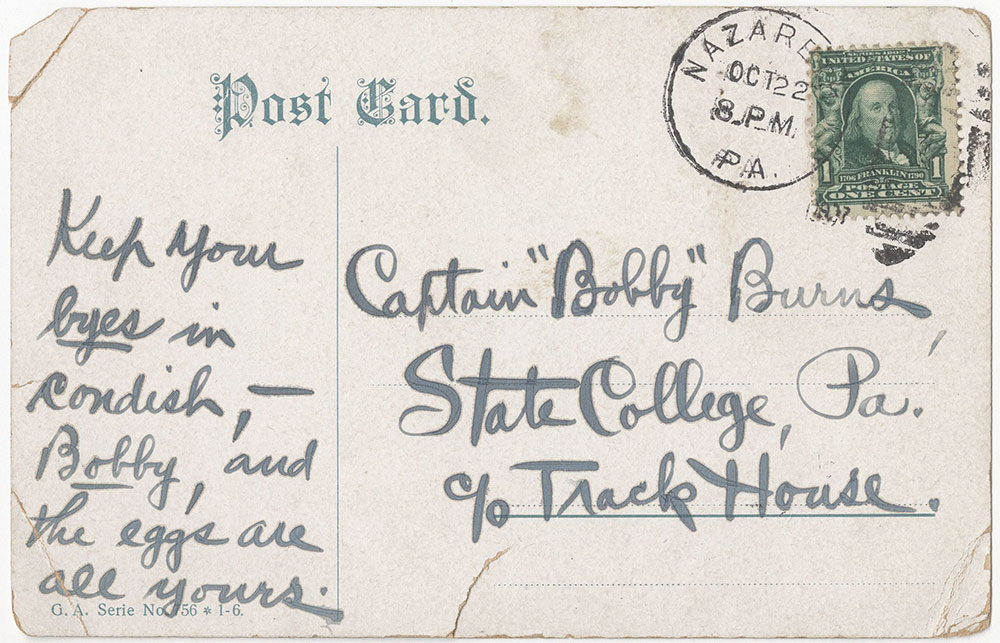 Post Card.
NAZARE
OCT 22
8 P.M
PA.
SERIES 1902
UNITED STATES OF
AMERICA
1
1706 FRANKLIN 1790
POSTAGE
ONE CENT
1
Keep your
byes in
condish, —
Bobby, and
the eggs are
all yours.
Captain "Bobby" Burns,
State College, Pa.
c/o Track House.
G. A. Serie No. 756 * 1-6.